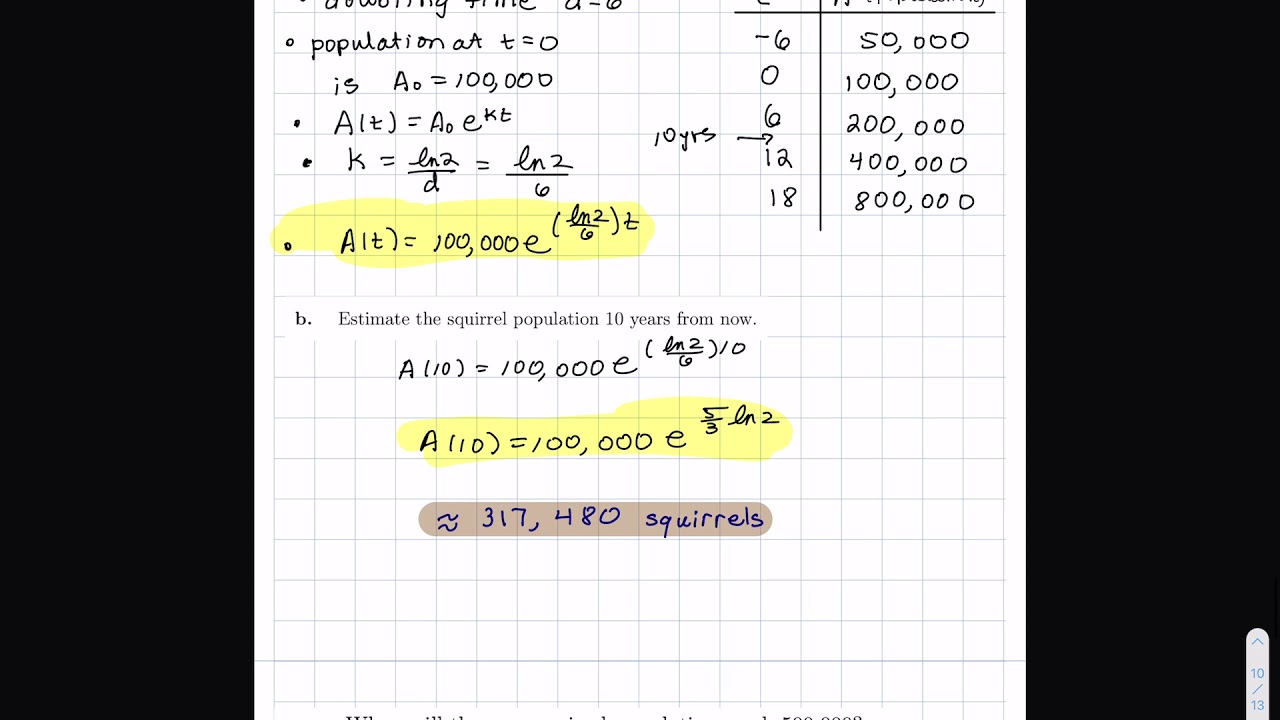 • doubling time d=6
t | A (population)
• population at t=0
is A₀ = 100,000
• A(t) = A₀ e^{kt}
• k = ln2/d = ln2/6
• A(t) = 100,000 e^{(ln2/6)t}
-6 | 50,000
0 | 100,000
6 | 200,000
10 yrs →
12 | 400,000
18 | 800,000
b. Estimate the squirrel population 10 years from now.
A(10) = 100,000 e^{(ln2/6)10}
A(10) = 100,000 e^{5/3 ln2}
≈ 317,480 squirrels
10
/
13